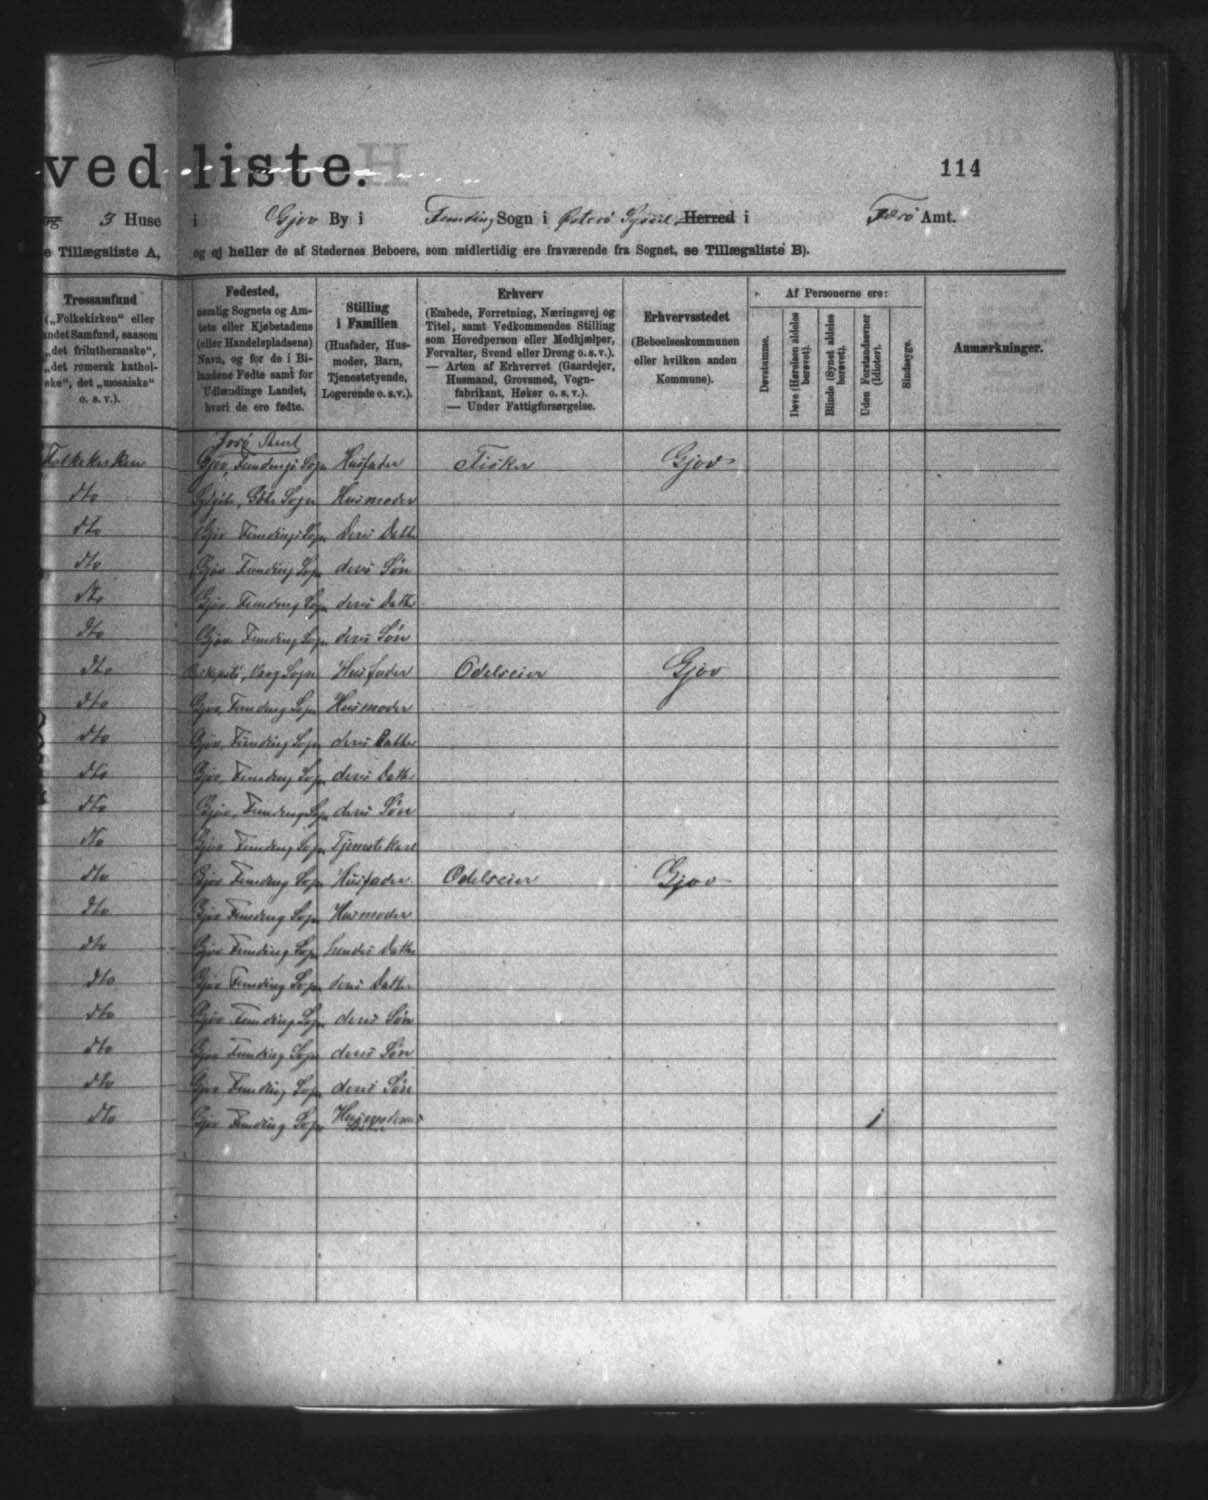 ved liste.
114
og 3 Huse i Gjov By i Funding Sogn i Østerø Syssel Herred i Færø Amt.
e Tillægsliste A, og ej heller de af Stedernes Beboere, som midlertidig ere fraværende fra Sognet, se Tillægsliste B).
Trossamfund
(„Folkekirken“ eller
andet Samfund, saasom
„det frilutheranske“,
„det romersk kathol-
ske“, det „mosaiske“
o. s. v.).
Fødested,
nemlig Sognets og Am-
tets eller Kjøbstadens
(eller Handelspladsens)
Navn, og for de i Bi-
landene Fødte samt for
Udlændinge Landet,
hvori de ere fødte.
Stilling
i Familien
(Husfader, Hus-
moder, Barn,
Tjenestetyende,
Logerende o. s. v.).
Erhverv
(Embede, Forretning, Næringsvej og
Titel, samt Vedkommendes Stilling
som Hovedperson eller Medhjælper,
Forvalter, Svend eller Dreng o. s. v.).
— Arten af Erhvervet (Gaardejer,
Husmand, Grovsmed, Vogn-
fabrikant, Høker o. s. v.).
— Under Fattigforsørgelse.
Erhvervsstedet
(Beboelseskommunen
eller hvilken anden
Kommune).
Af Personerne ere:
Døvstumme.
Døve (Hørelsen aldeles
berøvet).
Blinde (Synet aldeles
berøvet).
Uden Forstandsevner
(Idioter).
Sindssyge.
Anmærkninger.
Færø Amt
Folkekirken Gjov, Fundings Sogn Husfader Fisker Gjov
dto Sogn Husmoder
dto Gjov Fundings Sogn deres Datter
dto Gjov Funding Sogn deres Søn
dto Gjov Funding Sogn deres Datter
dto Gjov Funding Sogn deres Søn
dto Vaag Sogn Husfader Odelseier Gjov
dto Gjov, Funding Sogn Husmoder
dto Gjov, Funding Sogn deres Datter
dto Gjov, Funding Sogn deres Datter
dto Gjov, Funding Sogn deres Søn
dto Gjov Funding Sogn Tjenestekarl
dto Gjov Funding Sogn Husfader Odelseier Gjov
dto Gjov Funding Sogn Husmoder
dto Gjov Funding Sogn Datter
dto Gjov Funding Sogn deres Datter
dto Gjov Funding Sogn deres Søn
dto Gjov Funding Sogn deres Søn
dto Gjov Funding Sogn deres Søn
dto Gjov Funding Sogn Husmoderens 1